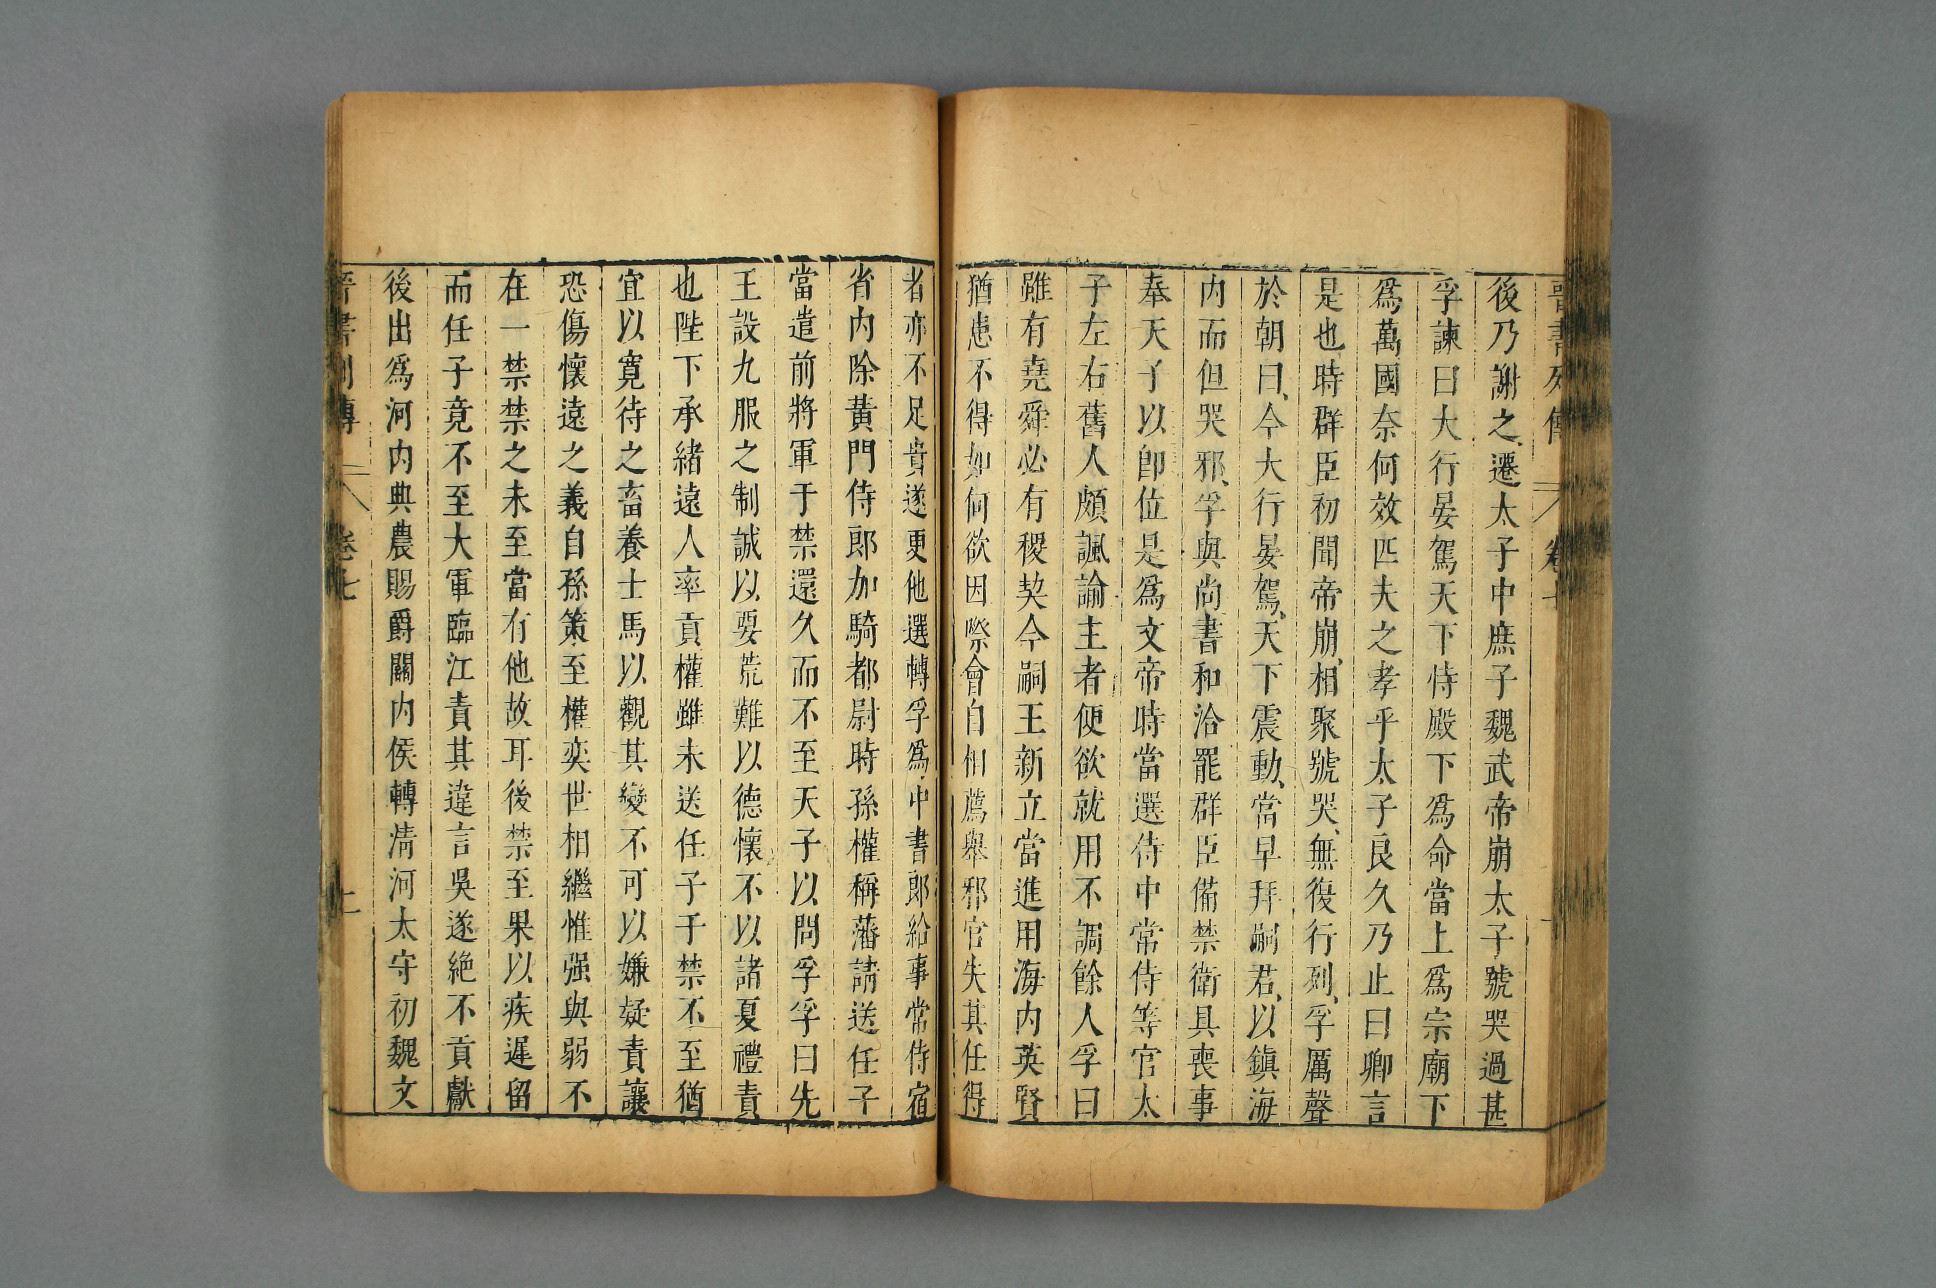 晉書列傳 卷七
後乃謝之遷太子中庶子魏武帝崩太子號哭過甚
孚諫曰大行晏駕天下恃殿下爲命當上爲宗廟下
爲萬國奈何效匹夫之孝乎太子良久乃止曰卿言
是也時群臣初聞帝崩相聚號哭無復行列孚厲聲
於朝曰今大行晏駕天下震動當早拜嗣君以鎮海
内而但哭邪孚與尚書和洽罷群臣備禁衛具喪事
奉天子以卽位是爲文帝時當選侍中常侍等官太
子左右舊人頗諷諭主者便欲就用不調餘人孚曰
雖有堯舜必有稷契今嗣王新立當進用海内英賢
猶患不得如何欲因際會自相薦舉邪官失其任得
者亦不足貴遂更他選轉孚爲中書郎給事常侍宿
省内除黃門侍郎加騎都尉時孫權稱藩請送任子
當遣前將軍于禁還久而不至天子以問孚孚曰先
王設九服之制誠以要荒難以德懷不以諸夏禮責
也陛下承緒遠人率貢權雖未送任子于禁不至猶
宜以寛待之畜養士馬以觀其變不可以嫌疑責讓
恐傷懷遠之義自孫策至權奕世相繼惟强與弱不
在一禁禁之未至當有他故耳後禁至果以疾遲留
而任子竟不至大軍臨江責其違言吳遂絶不貢獻
後出爲河内典農賜爵關内侯轉淸河太守初魏文
晉書列傳 卷七